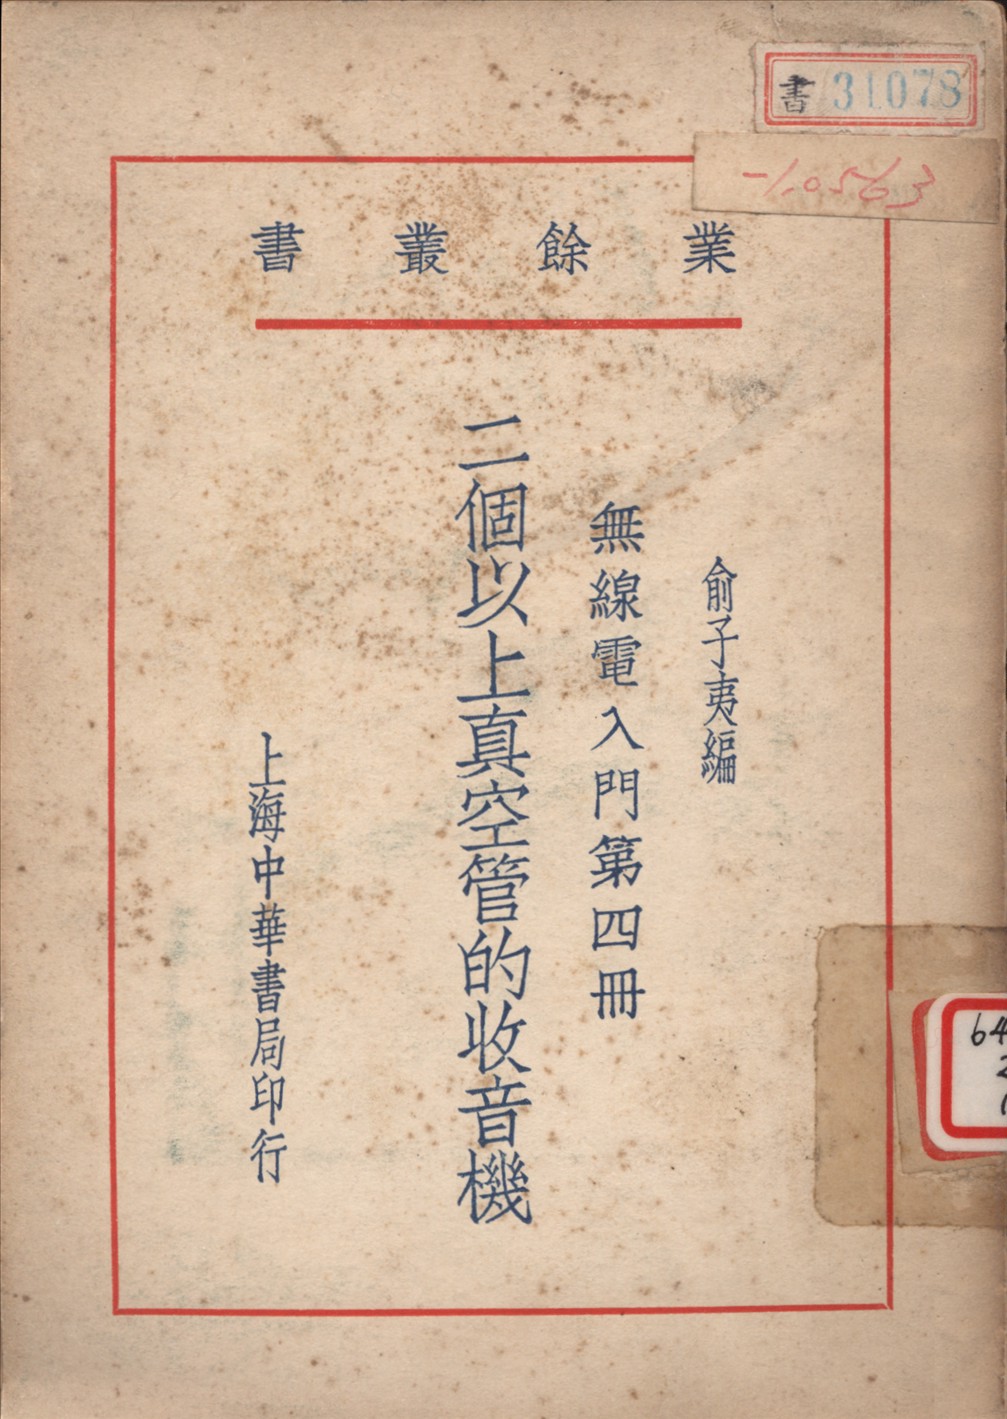 書 31078
-1.0563
業餘叢書
俞子夷編
無線電入門第四冊
二個以上真空管的收音機
上海中華書局印行
64